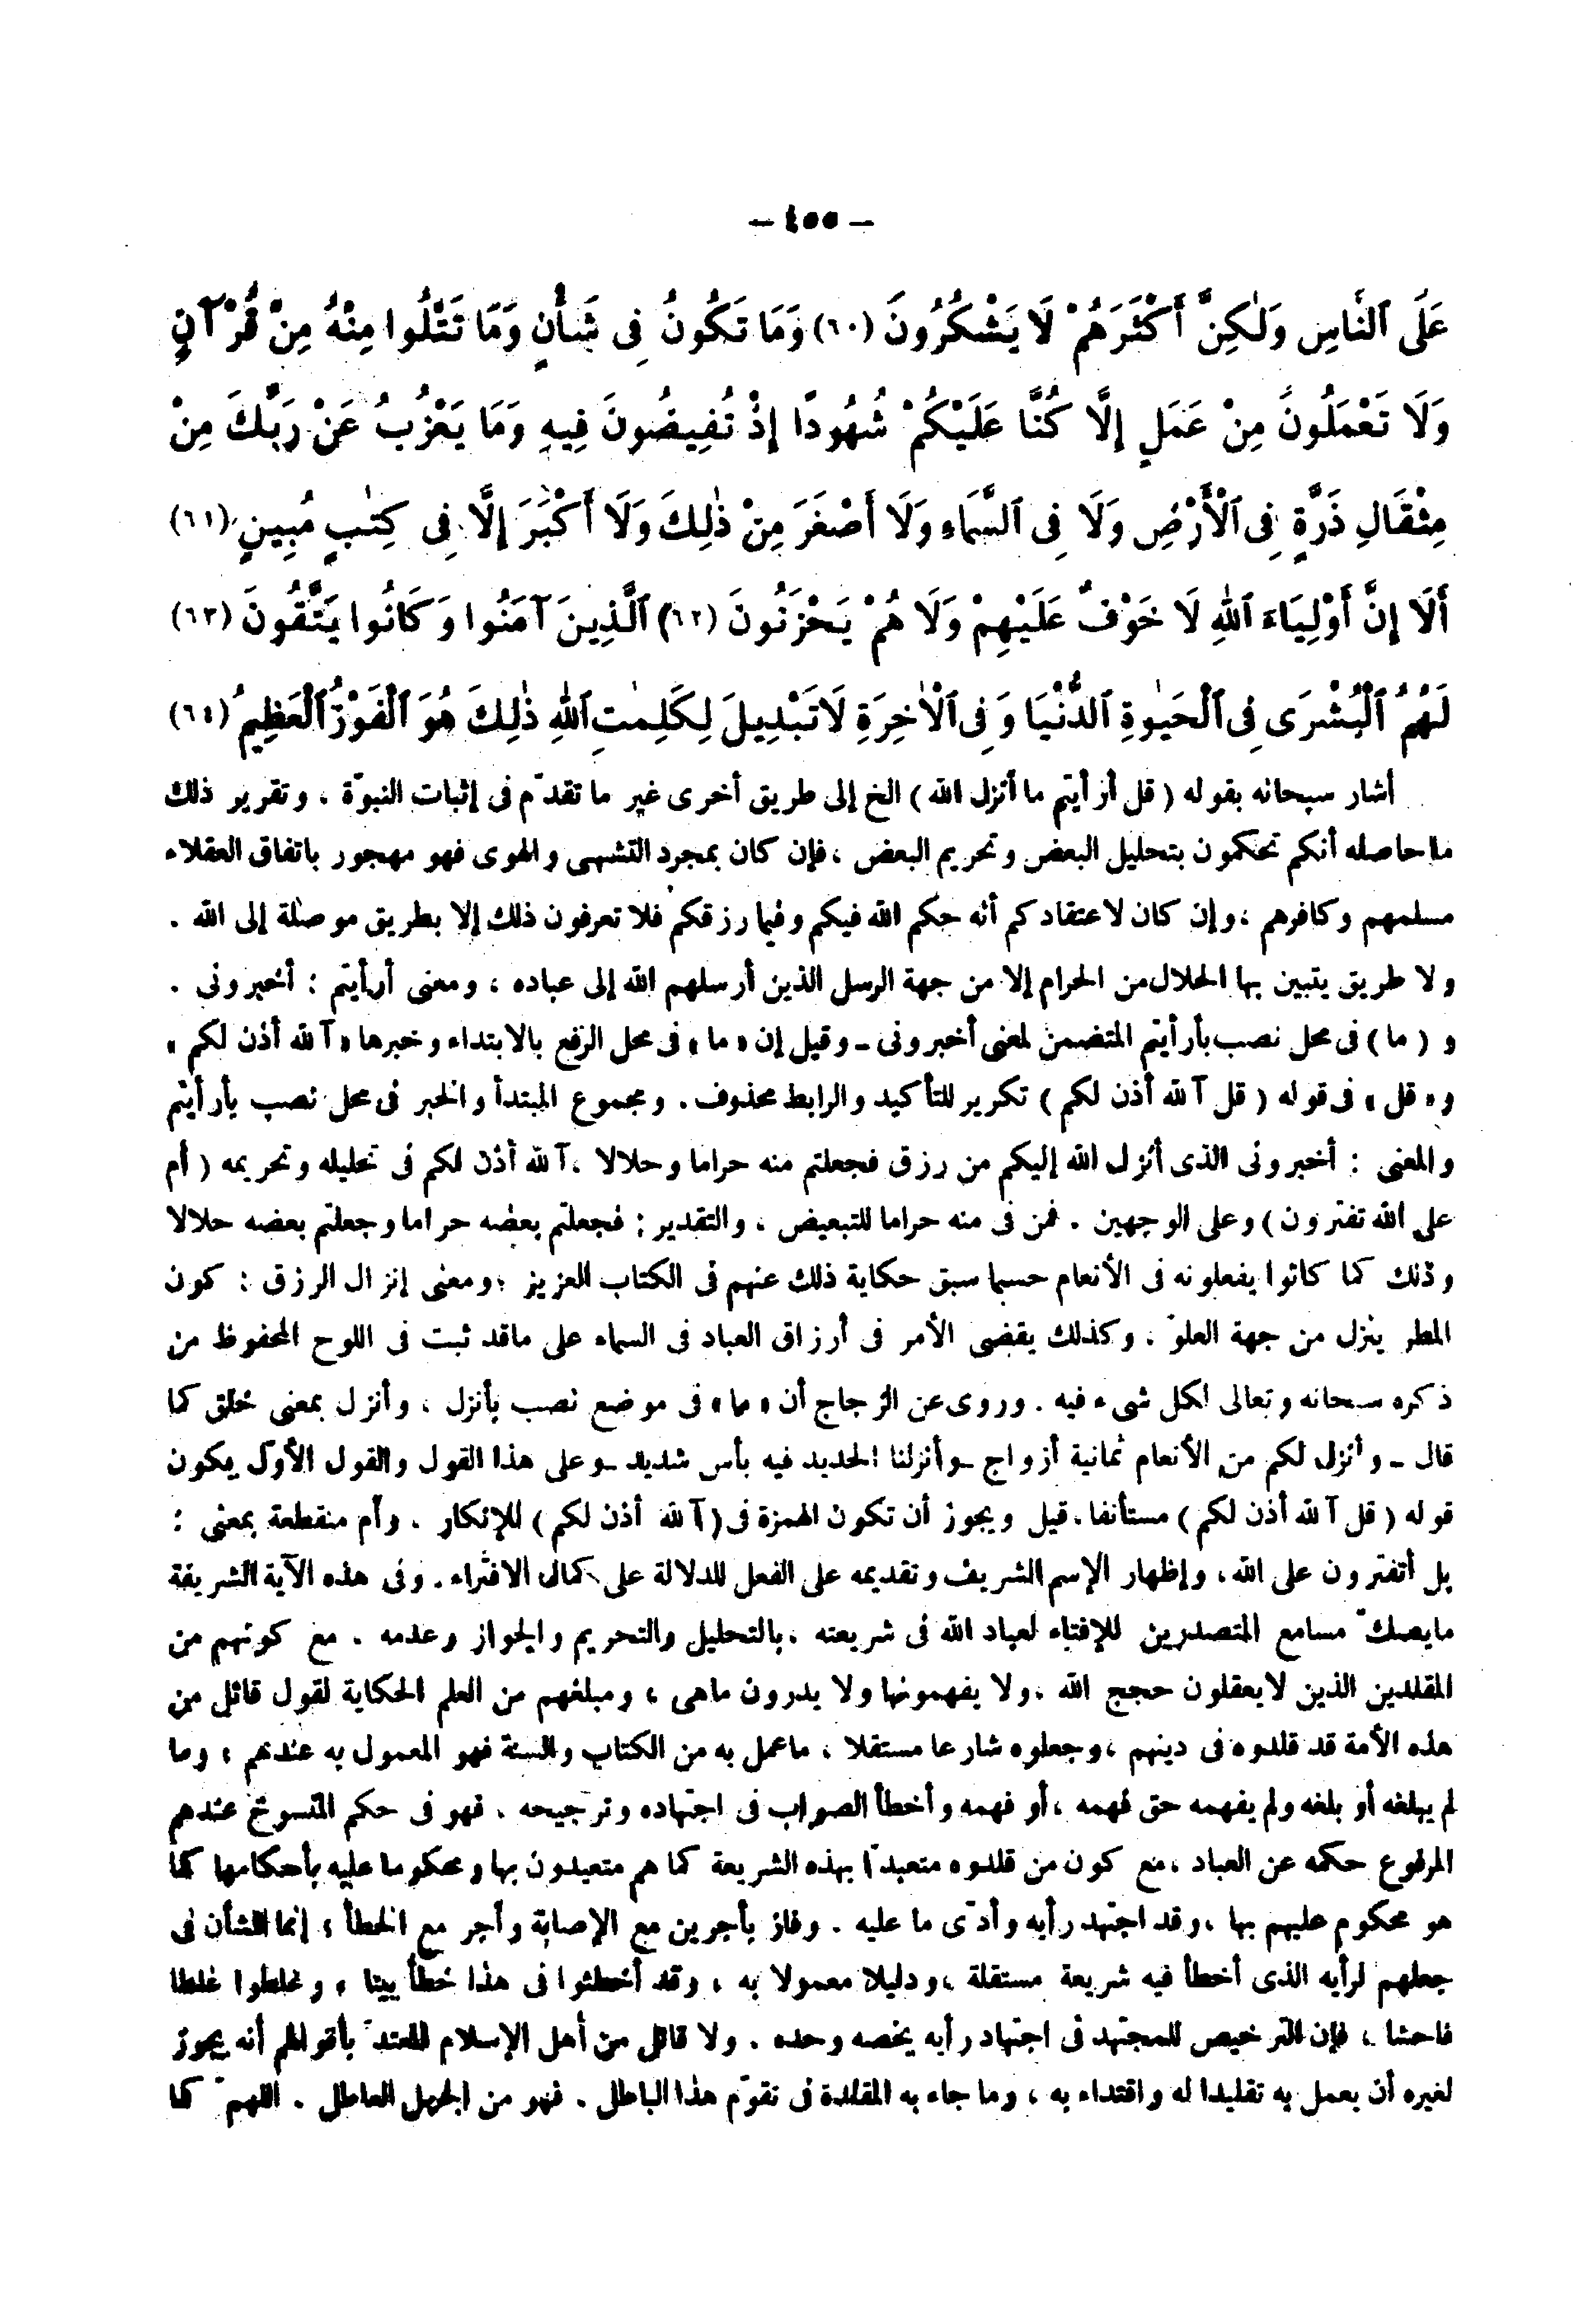 — ٤٥٥ —
عَلَى ٱلنَّاسِ وَلَٰكِنَّ أَكْثَرَهُمْ لَا يَشْكُرُونَ (٦٠) وَمَا تَكُونُ فِى شَأْنٍ وَمَا تَتْلُوا مِنْهُ مِنْ قُرْآنٍ
وَلَا تَعْمَلُونَ مِنْ عَمَلٍ إِلَّا كُنَّا عَلَيْكُمْ شُهُودًا إِذْ تُفِيضُونَ فِيهِ وَمَا يَعْزُبُ عَنْ رَبِّكَ مِنْ
مِثْقَالِ ذَرَّةٍ فِى ٱلْأَرْضِ وَلَا فِى ٱلسَّمَاءِ وَلَا أَصْغَرَ مِنْ ذَٰلِكَ وَلَا أَكْبَرَ إِلَّا فِى كِتَٰبٍ مُبِينٍ (٦١)
أَلَا إِنَّ أَوْلِيَاءَ ٱللهِ لَا خَوْفٌ عَلَيْهِمْ وَلَا هُمْ يَحْزَنُونَ (٦٢) ٱلَّذِينَ آمَنُوا وَكَانُوا يَتَّقُونَ (٦٣)
لَهُمُ ٱلْبُشْرَى فِى ٱلْحَيَوٰةِ ٱلدُّنْيَا وَفِى ٱلْآخِرَةِ لَا تَبْدِيلَ لِكَلِمَٰتِ ٱللهِ ذَٰلِكَ هُوَ ٱلْفَوْزُ ٱلْعَظِيمُ (٦٤)
أشار سبحانه بقوله ( قل أرأيتم ما أنزل الله ) الخ إلى طريق أخرى غير ما تقدّم فى إثبات النبوّة ، وتقرير ذلك
ما حاصله أنكم تحكمون بتحليل البعض وتحريم البعض ، فإن كان بمجرد التشهى والهوى فهو مهجور باتفاق العقلاء
مسلمهم وكافرهم ، وإن كان لاعتقادكم أنه حكم الله فيكم وفيما رزقكم فلا تعرفون ذلك إلا بطريق موصلة إلى الله .
ولا طريق يتبين بها الحلال من الحرام إلا من جهة الرسل الذين أرسلهم الله إلى عباده ، ومعنى أرأيتم : أخبرونى .
و ( ما ) فى محل نصب بأرأيتم المتضمن لمعنى أخبرونى ـ وقيل إن « ما » فى محل الرفع بالابتداء وخبرها « آلله أذن لكم »
و« قل » فى قوله ( قل آلله أذن لكم ) تكرير للتأكيد والرابط محذوف . ومجموع المبتدأ والخبر فى محل نصب بأرأيتم
والمعنى : أخبرونى الذى أنزل الله إليكم من رزق فجعلتم منه حراما وحلالا ، آلله أذن لكم فى تحليله وتحريمه ( أم
على الله تفترون ) وعلى الوجهين . فمن فى منه حراما للتبعيض ، والتقدير : فجعلتم بعضه حراما وجعلتم بعضه حلالا
وذلك كما كانوا يفعلونه فى الأنعام حسبما سبق حكاية ذلك عنهم فى الكتاب العزيز ؛ ومعنى إنزال الرزق : كون
المطر ينزل من جهة العلوّ ، وكذلك يقضى الأمر فى أرزاق العباد فى السماء على ماقد ثبت فى اللوح المحفوظ من
ذكره سبحانه وتعالى لكل شىء فيه . وروى عن الزجاج أن « ما » فى موضع نصب بأنزل ، وأنزل بمعنى خلق كما
قال ـ وأنزل لكم من الأنعام ثمانية أزواج ـ وأنزلنا الحديد فيه بأس شديد ـ وعلى هذا القول والقول الأول يكون
قوله ( قل آلله أذن لكم ) مستأنفا . قيل ويجوز أن تكون الهمزة فى ( آلله أذن لكم ) للإنكار . وأم منقطعة بمعنى :
بل أتفترون على الله ، وإظهار الإسم الشريف وتقديمه على الفعل للدلالة على كمال الافتراء . وفى هذه الآية الشريفة
مايصكّ مسامع المتصدرين للإفتاء لعباد الله فى شريعته . بالتحليل والتحريم والجواز وعدمه . مع كونهم من
المقلدين الذين لايعقلون حجج الله ، ولا يفهمونها ولا يدرون ماهى ، ومبلغهم من العلم الحكاية لقول قائل من
هذه الأمة قد قلدوه فى دينهم ، وجعلوه شارعا مستقلا ، ماعمل به من الكتاب والسنة فهو المعمول به عندهم ، وما
لم يبلغه أو بلغه ولم يفهمه حق فهمه ، أو فهمه وأخطأ الصواب فى اجتهاده وترجيحه . فهو فى حكم المنسوخ عندهم
المرفوع حكمه عن العباد ، مع كون من قلدوه متعبدا بهذه الشريعة كما هم متعبدون بها ومحكوما عليه بأحكامها كما
هو محكوم عليهم بها ، وقد اجتهد رأيه وأدّى ما عليه . وفاز بأجرين مع الإصابة وأجر مع الخطأ ؛ إنما الشأن فى
جعلهم لرأيه الذى أخطأ فيه شريعة مستقلة ، ودليلا معمولا به ، وقد أخطئوا فى هذا خطأ بينا ، وغلطوا غلطا
فاحشا ، فإن الترخيص للمجتهد فى اجتهاد رأيه يخصه وحده . ولا قائل من أهل الإسلام المعتدّ بأقوالهم أنه يجوز
لغيره أن يعمل به تقليدا له واقتداء به ، وما جاء به المقلدة فى تقوّم هذا الباطل . فهو من الجهل العاطل . اللهمّ كما